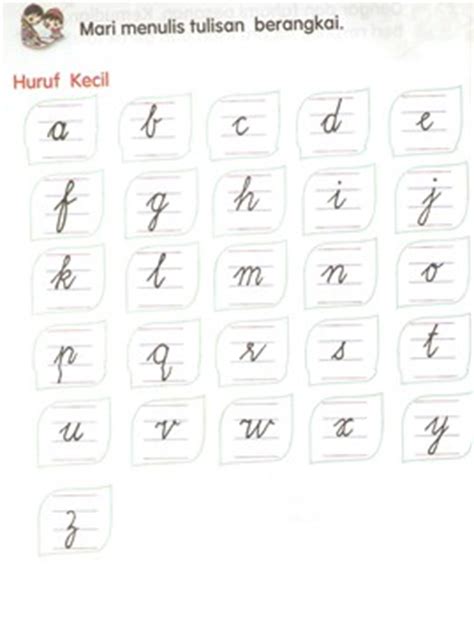 Mari menulis tulisan berangkai.
Huruf Kecil
a b c d e
f g h i j
k l m n o
p q r s t
u v w x y
z